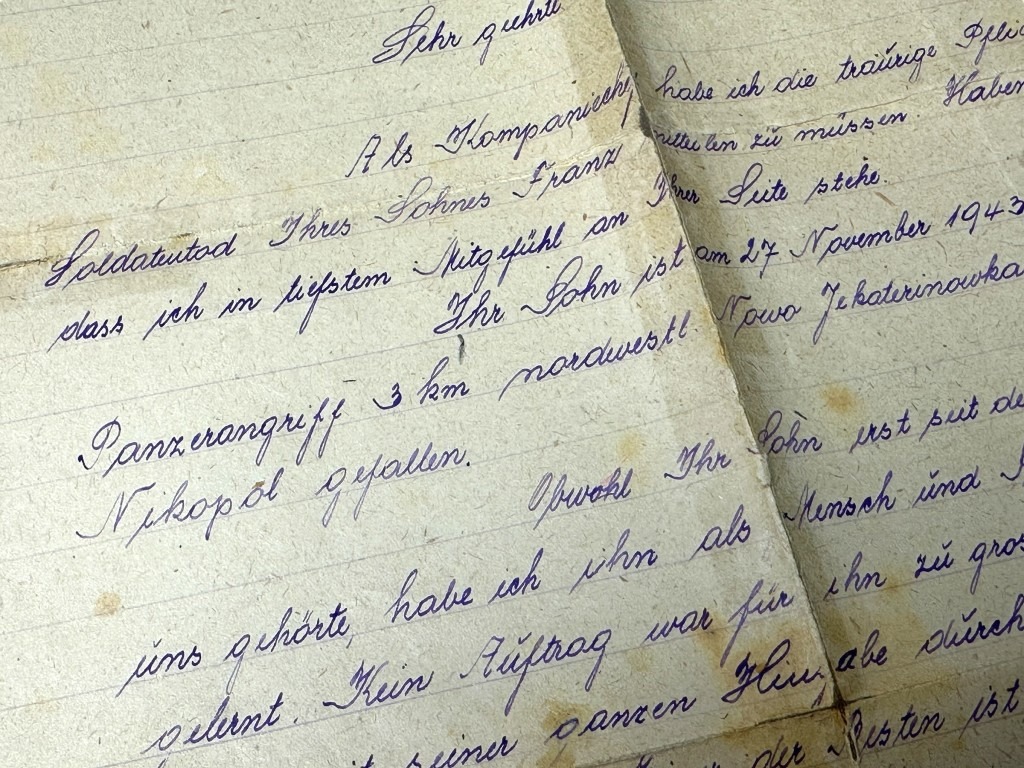 Sehr geehrte
Als Kompaniechef habe ich die traurige
Soldatentod Ihres Sohnes Franz mitteilen zu müssen. Haben
dass ich in tiefstem Mitgefühl an Ihrer Seite stehe.
Ihr Sohn ist am 27 November 1943
Panzerangriff 3 km nordwestl. Nowo Jekaterinowka
Nikopol gefallen.
Obwohl Ihr Sohn erst seit de
uns gehörte, habe ich ihn als Mensch und
gelernt. Kein Auftrag war für ihn zu gros
seiner ganzen Hingabe durch
der Besten ist